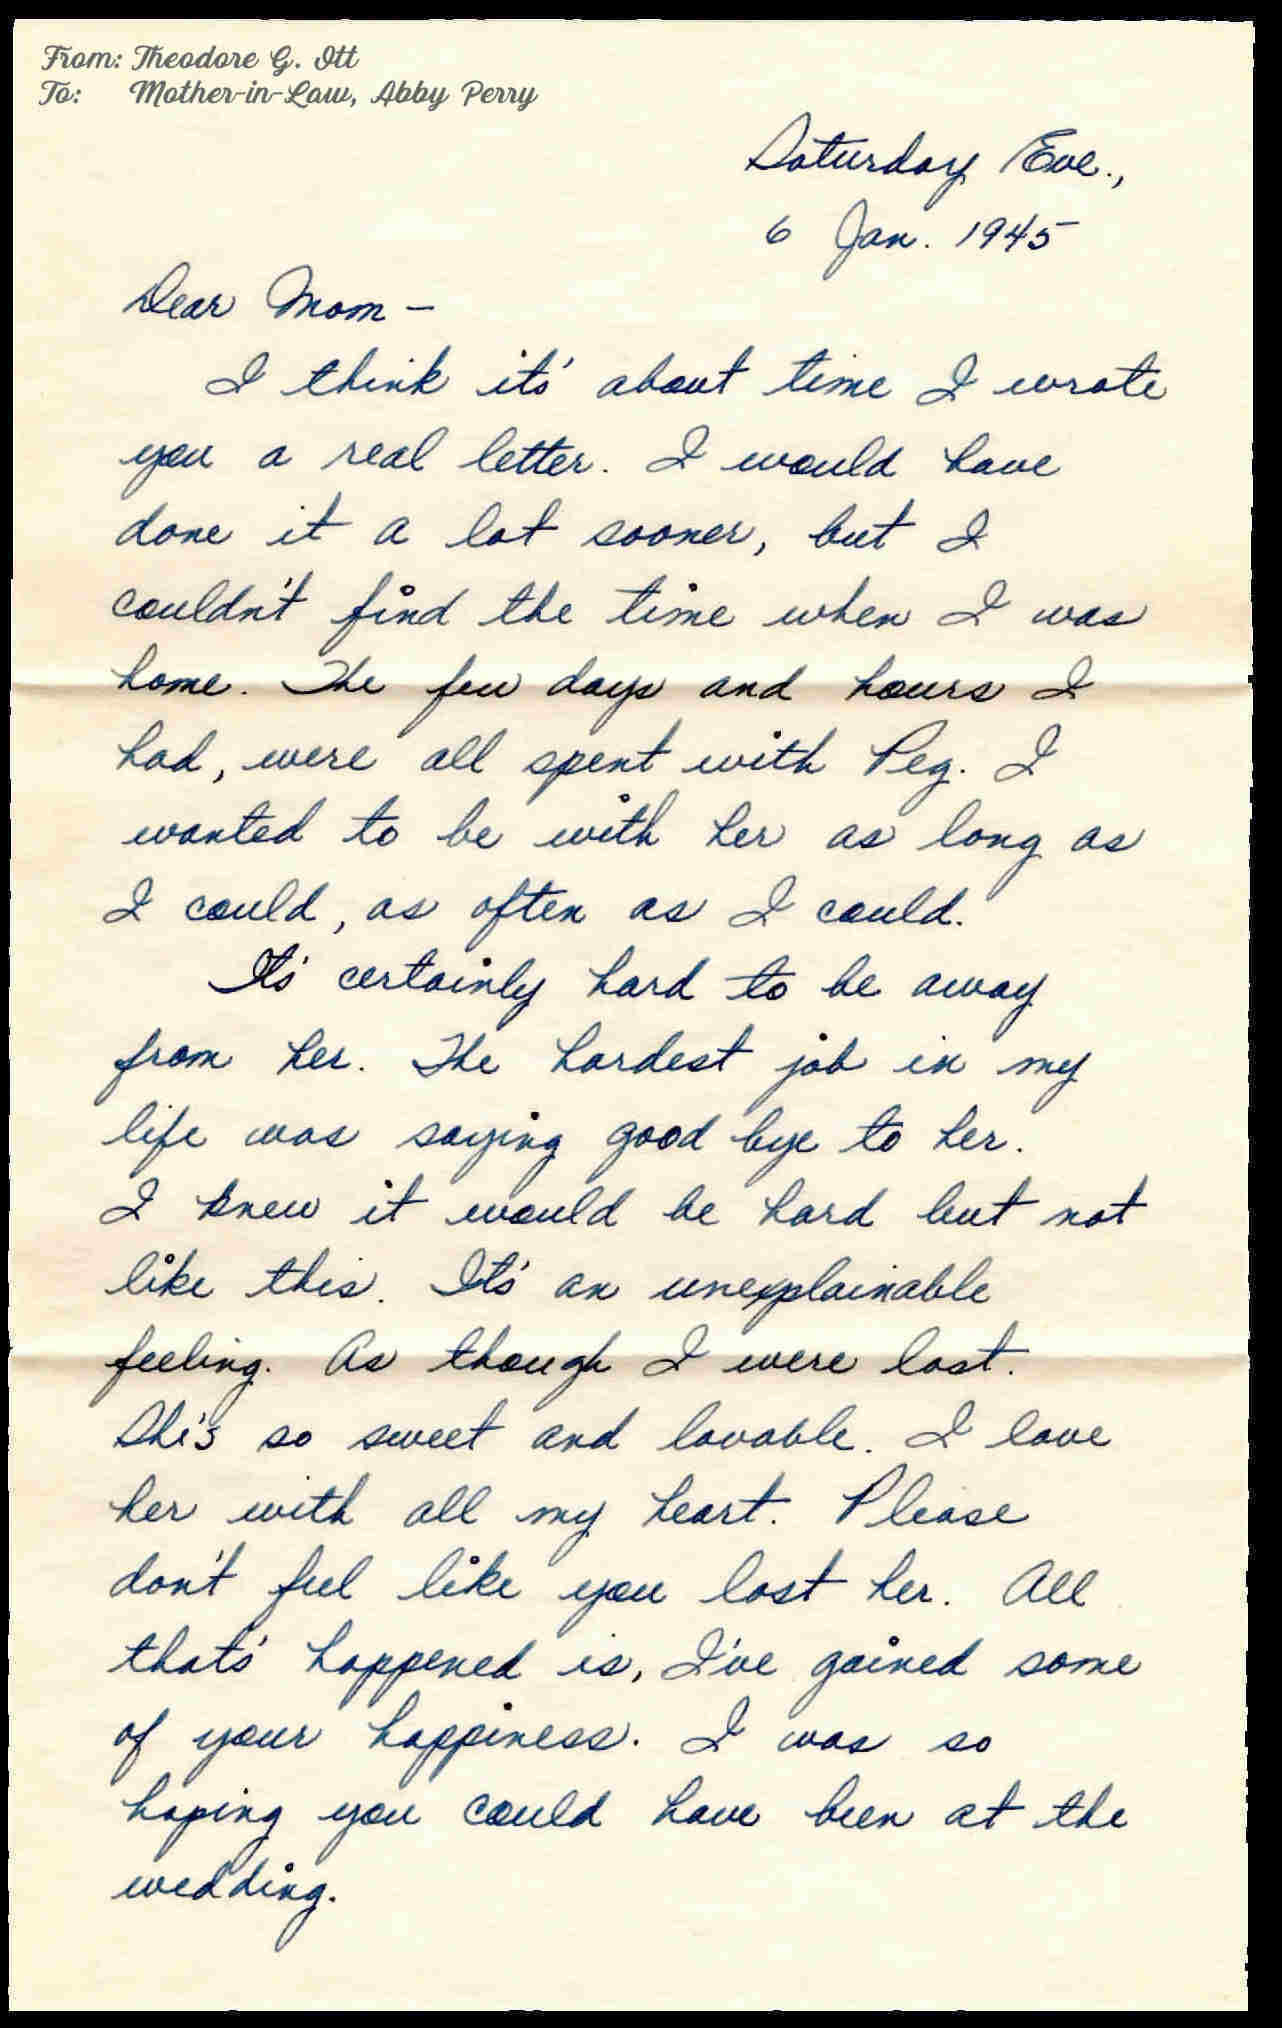 From: Theodore G. Ott
To: Mother-in-Law, Abby Perry
Saturday Eve.,
6 Jan. 1945
Dear Mom –
I think it's about time I wrote
you a real letter. I would have
done it a lot sooner, but I
couldn't find the time when I was
home. The few days and hours I
had, were all spent with Peg. I
wanted to be with her as long as
I could, as often as I could.
It's certainly hard to be away
from her. The hardest job in my
life was saying good bye to her.
I knew it would be hard but not
like this. It's an unexplainable
feeling. As though I were lost.
She's so sweet and lovable. I love
her with all my heart. Please
don't feel like you lost her. All
that's happened is, I've gained some
of your happiness. I was so
hoping you could have been at the
wedding.